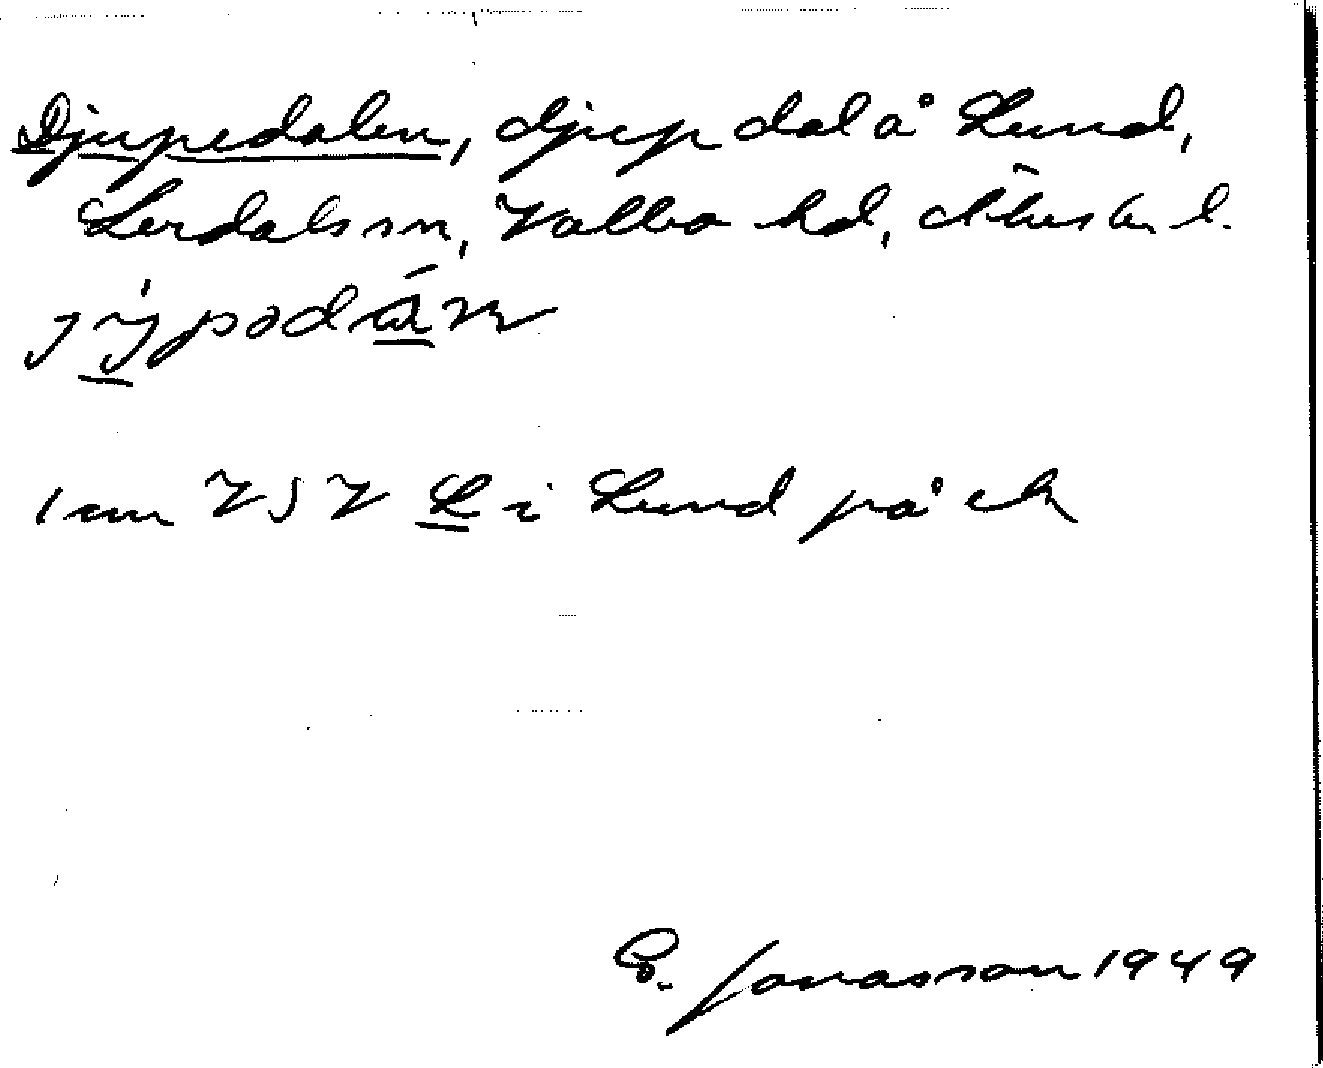 Djupedalen, djup dal å Lund,
Lerdals sn, Valbo hd, Älvsb. l.
jýpedàn
1 mm VSV L i Lund på ek
E. Jonasson 1949